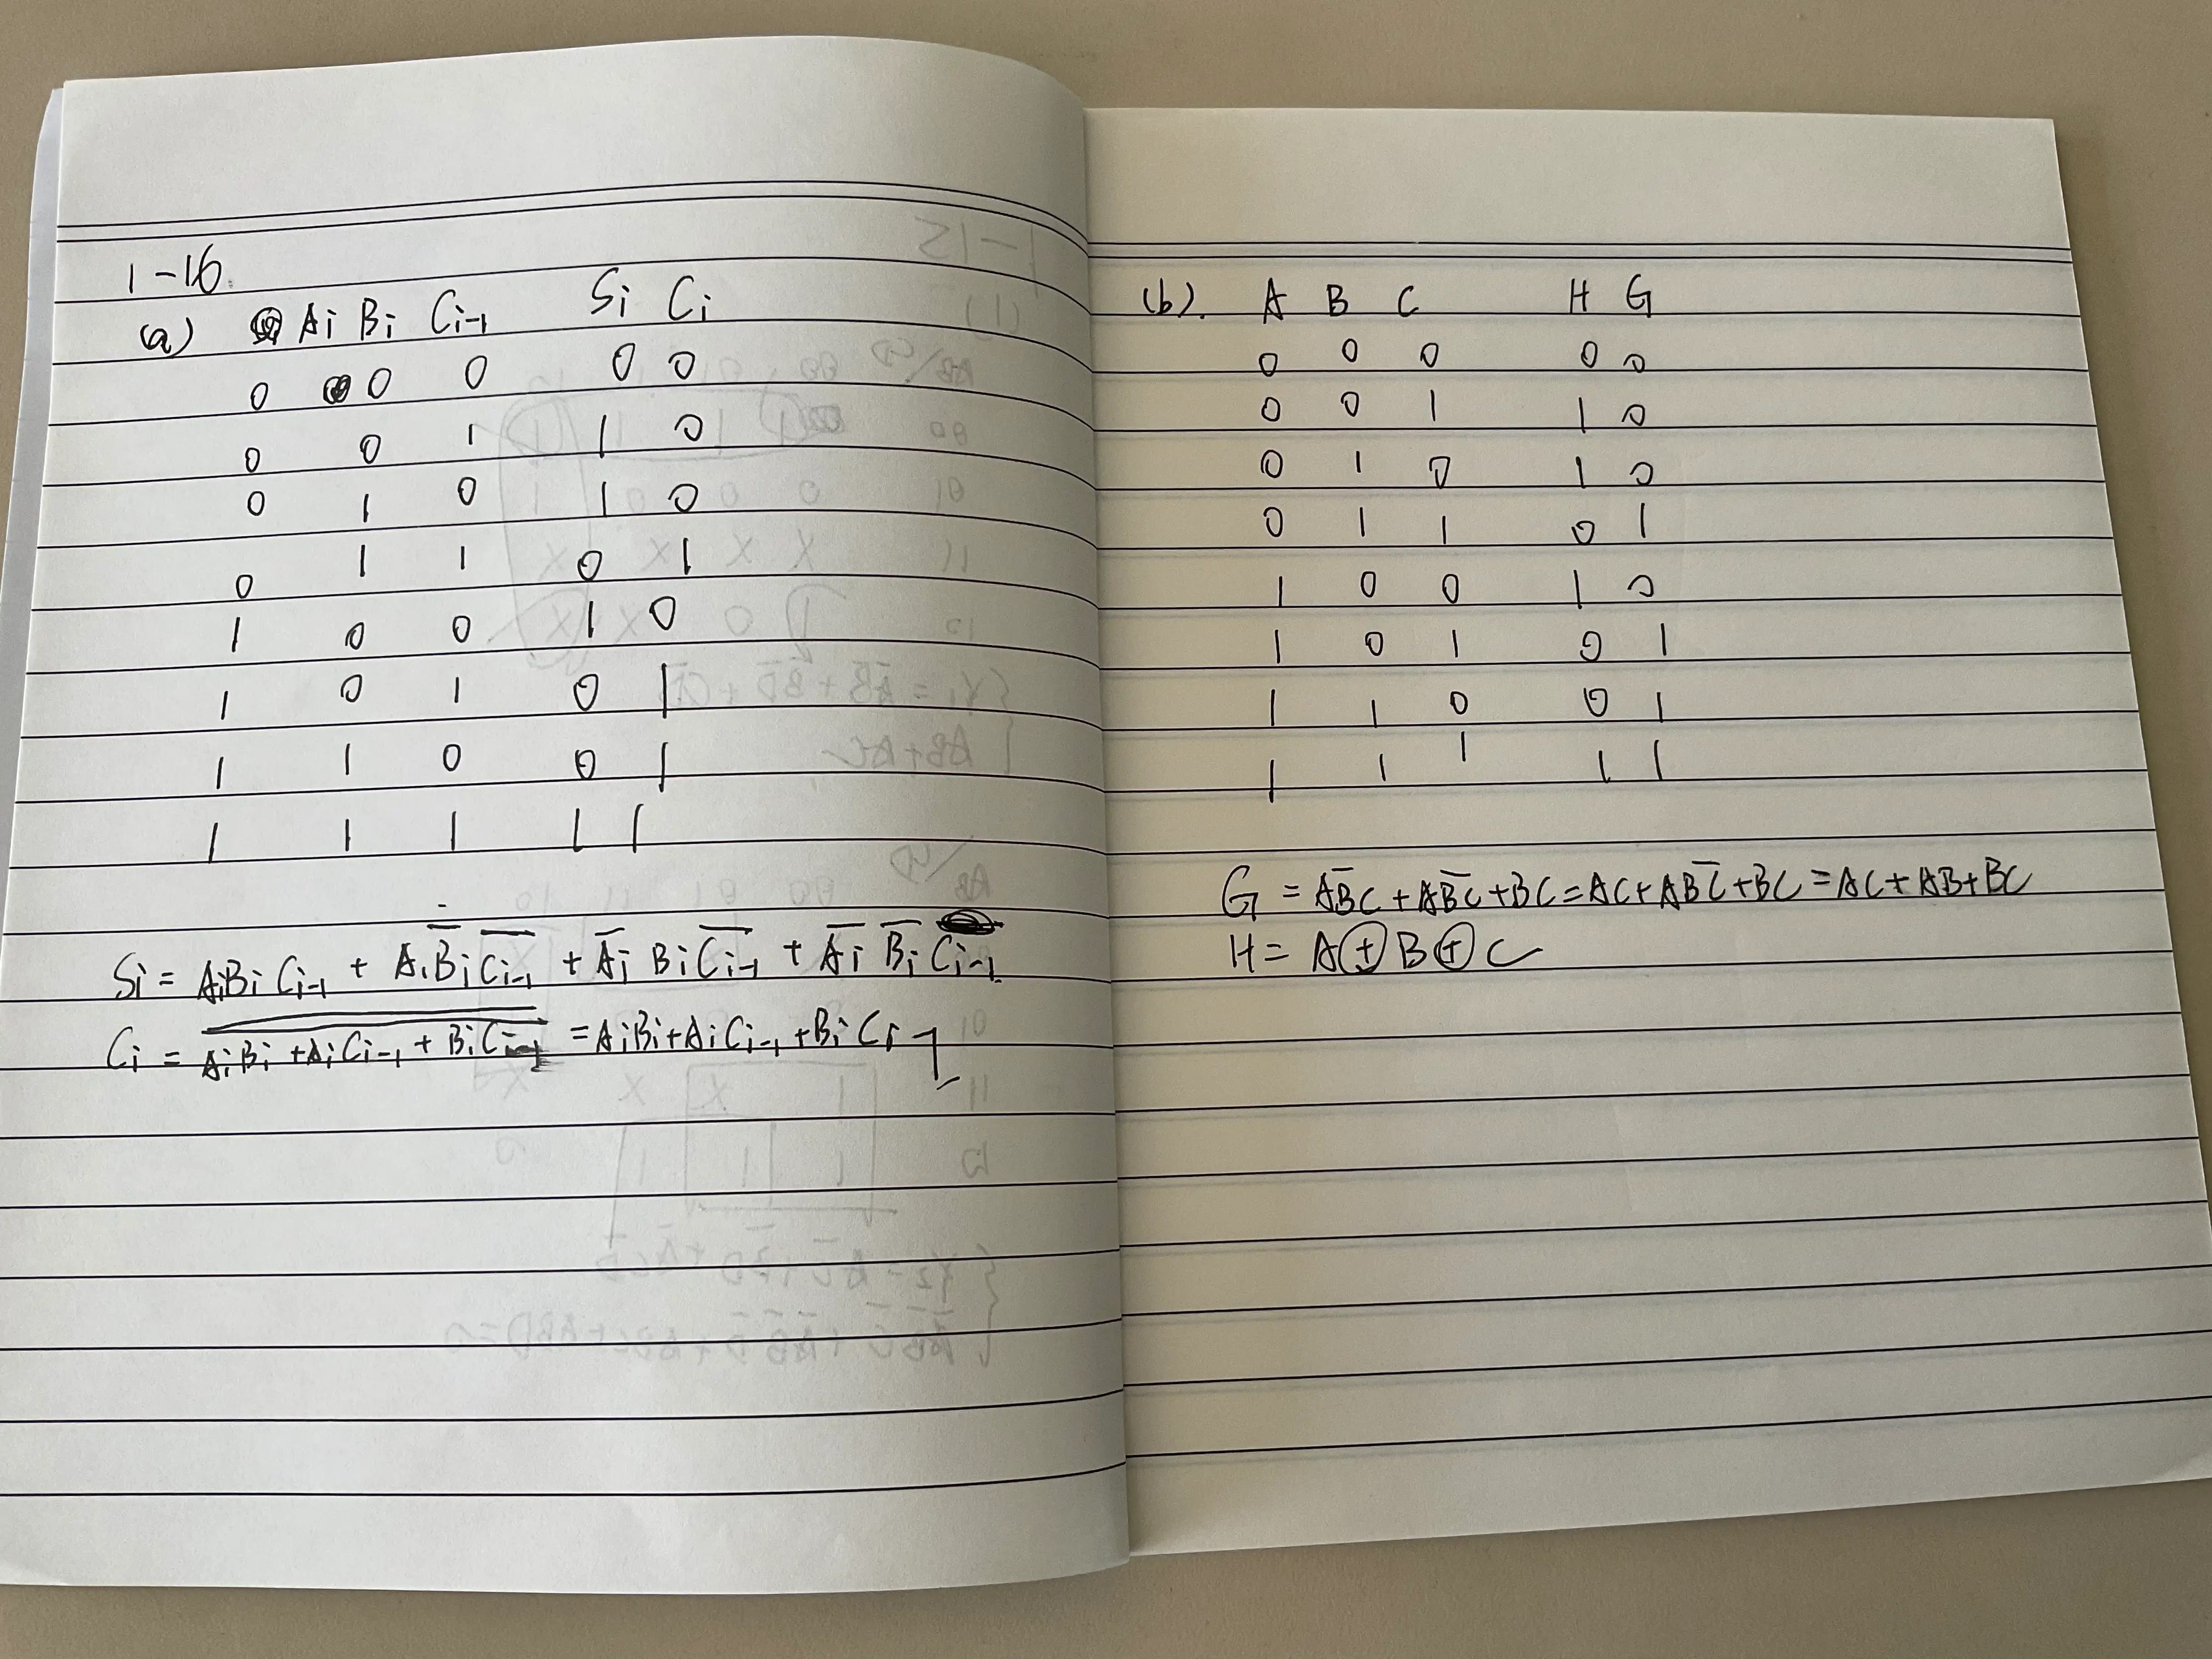 1-16.
(a) Ai Bi Ci-1 Si Ci
0 0 0 0 0
0 0 1 1 0
0 1 0 1 0
0 1 1 0 1
1 0 0 1 0
1 0 1 0 1
1 1 0 0 1
1 1 1 1 1
Si = AiBi Ci-1 + Ai B̅i C̅i-1 + A̅i Bi C̅i-1 + A̅i B̅i Ci-1
Ci = \overline{\overline{AiBi + AiCi-1 + BiCi-1}} = AiBi + AiCi-1 + BiCi-1
(b). A B C H G
0 0 0 0 0
0 0 1 1 0
0 1 0 1 0
0 1 1 0 1
1 0 0 1 0
1 0 1 0 1
1 1 0 0 1
1 1 1 1 1
G = AB̅C + AB̅C̅ + BC = AC + ABC̅ + BC = AC + AB + BC
H = A⊕B⊕C